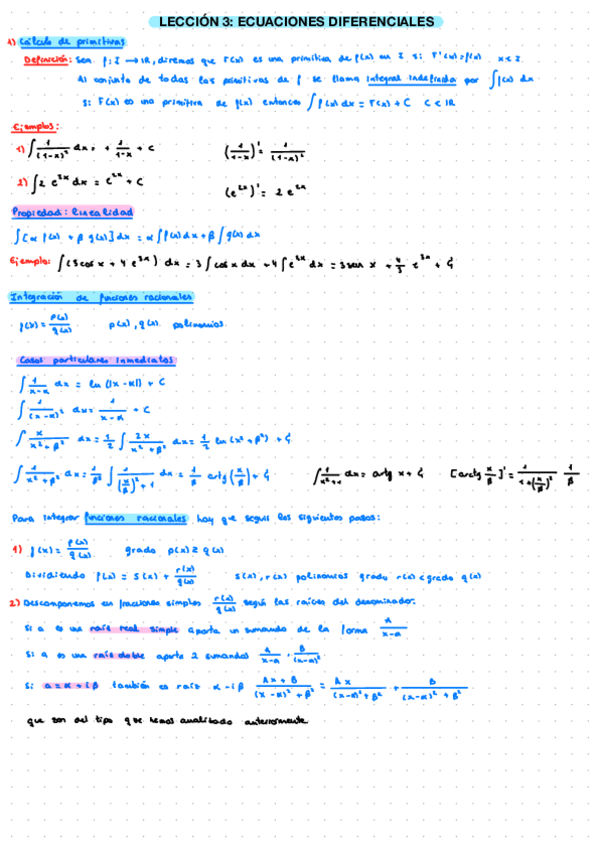 LECCIÓN 3: ECUACIONES DIFERENCIALES
1) Cálculo de primitivas
Definición: Sea f: I → IR, diremos que F(x) es una primitiva de f(x) en I si F'(x) = f(x) x ∈ I
Al conjunto de todas las primitivas de f se llama integral indefinida por ∫f(x) dx
Si F(x) es una primitiva de f(x) entonces ∫f(x) dx = F(x) + C C ∈ IR
Ejemplos:
1) ∫ 1/(1-x)² dx = + 1/(1-x) + C (1/(1-x))' = 1/(1-x)²
2) ∫2 e^2x dx = e^2x + C (e^2x)' = 2 e^2x
Propiedad: linealidad
∫[α f(x) + β g(x)] dx = α ∫f(x) dx + β ∫g(x) dx
Ejemplo: ∫(3cos x + 4 e^3x) dx = 3 ∫cos x dx + 4 ∫e^3x dx = 3 sen x + 4/3 e^3x + C
Integración de funciones racionales
f(x) = p(x)/q(x) p(x), q(x) polinomios
Casos particulares inmediatos
∫ 1/(x-α) dx = ln(|x-α|) + C
∫ 1/(x-α)² dx = 1/(x-α) + C
∫ x/(x²+β²) dx = 1/2 ∫ 2x/(x²+β²) dx = 1/2 ln(x²+β²) + C
∫ 1/(x²+β²) dx = 1/β² ∫ 1/((x/β)²+1) dx = 1/β arctg(x/β) + C ∫ 1/(x²+1) dx = arctg x + C [arctg x/β]' = 1/(1+(x/β)²) 1/β
Para integrar funciones racionales hay que seguir los siguientes pasos:
1) f(x) = p(x)/q(x) grado p(x) ≥ q(x)
Dividiendo f(x) = s(x) + r(x)/q(x) s(x), r(x) polinomios grado r(x) < grado q(x)
2) Descomponemos en fracciones simples r(x)/q(x) según las raíces del denominador.
Si a es una raíz real simple aporta un sumando de la forma A/(x-a)
Si a es una raíz doble aporta 2 sumandos A/(x-a) , B/(x-a)²
Si a = α + iβ también es raíz α - iβ (Ax + B)/((x-α)² + β²) = Ax/((x-α)² + β²) + B/((x-α)² + β²)
que son del tipo que hemos analizado anteriormente.